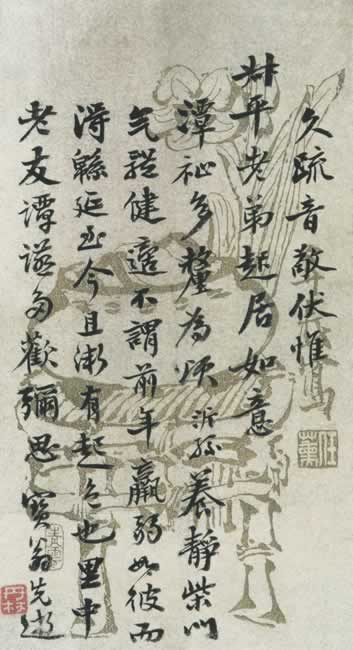 久疏音敬伏惟
平老弟起居如意
潭祉多釐為頌沂孫養靜柴門
气體健適不謂前年羸弱如彼而
得緜延至今且漸有起色也里中
老友譚為歡彌思寶翁先
任薰
丹林